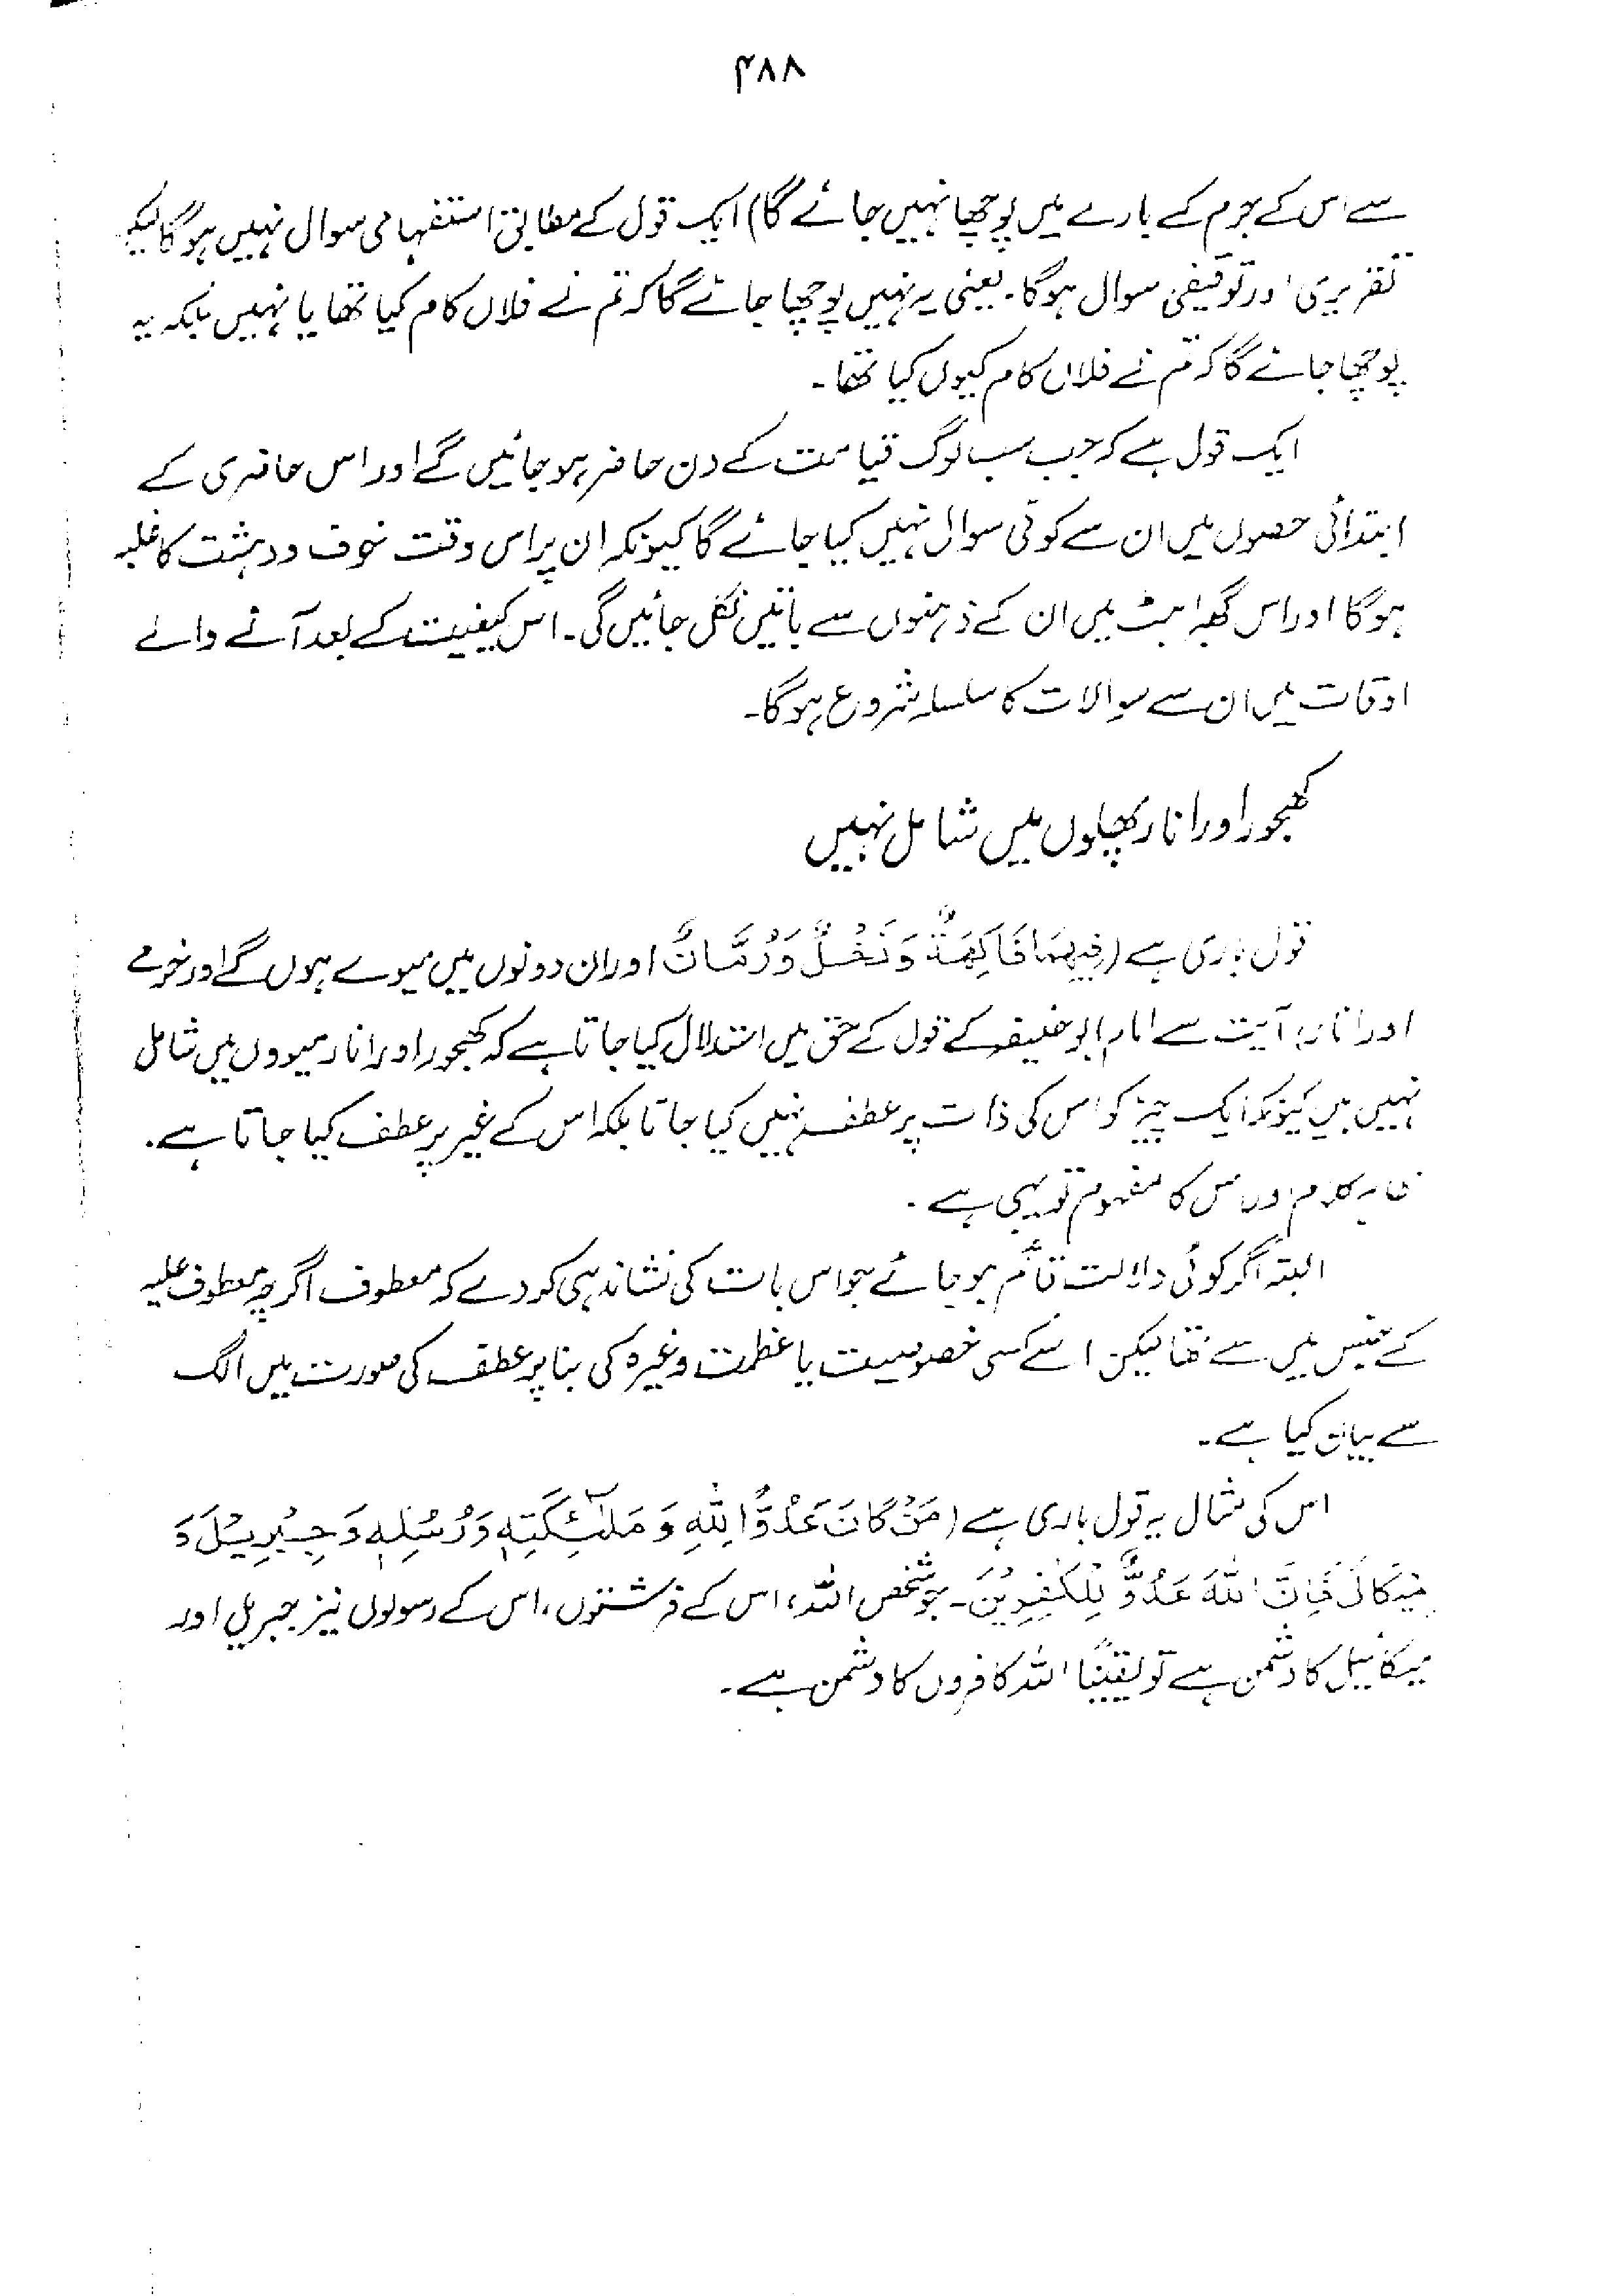 ۴۸۸
سے اس کے جرم کے بارے میں پوچھا نہیں جائے گا) ایک قول کے مطابق استفہامی سوال نہیں ہوگا
تقریری اور توقیفی سوال ہوگا۔ یعنی یہ نہیں پوچھا جائے گا کہ تم نے فلاں کام کیا تھا یا نہیں بلکہ یہ
پوچھا جائے گا کہ تم نے فلاں کام کیوں کیا تھا۔
ایک قول ہے کہ جب سب لوگ قیامت کے دن حاضر ہو جائیں گے اور اس حاضری کے
ابتدائی حصوں میں ان سے کوئی سوال نہیں کیا جائے گا کیونکہ ان پر اس وقت خوف و دہشت کا غلبہ
ہوگا اور اس گھبراہٹ میں ان کے ذہنوں سے باتیں نکل جائیں گی۔ اس کیفیت کے بعد آنے والے
اوقات میں ان سے سوالات کا سلسلہ شروع ہوگا۔
کھجور اور انار پھلوں میں شامل نہیں
قول باری ہے (فِيهِمَا فَاكِهَةٌ وَنَخْلٌ وَرُمَّانٌ اور ان دونوں میں میوے ہوں گے اور خرمے
اور انار) آیت سے امام ابوحنیفہ کے قول کے حق میں استدلال کیا جاتا ہے کہ کھجور اور انار میووں میں شامل
نہیں ہیں کیونکہ ایک چیز کو اس کی ذات پر عطف نہیں کیا جاتا بلکہ اس کے غیر پر عطف کیا جاتا ہے۔
کلام اور اس کا مفہوم تو یہی ہے۔
البتہ اگر کوئی دلالت قائم ہو جائے جو اس بات کی نشاندہی کر دے کہ معطوف اگرچہ معطوف علیہ
کے جنس میں سے تھا لیکن اسے کسی خصوصیت یا عظمت وغیرہ کی بنا پر عطف کی صورت میں الگ
سے بیان کیا ہے۔
اس کی مثال یہ قول باری ہے (مَنْ كَانَ عَدُوًّا لِلّٰهِ وَمَلٰٓئِكَتِهٖ وَرُسُلِهٖ وَجِبْرِيْلَ وَ
مِيْكَالَ فَاِنَّ اللّٰهَ عَدُوٌّ لِّلْكٰفِرِيْنَ۔ جو شخص اللہ، اس کے فرشتوں، اس کے رسولوں نیز جبریل اور
میکائیل کا دشمن ہے تو یقیناً اللہ کافروں کا دشمن ہے۔